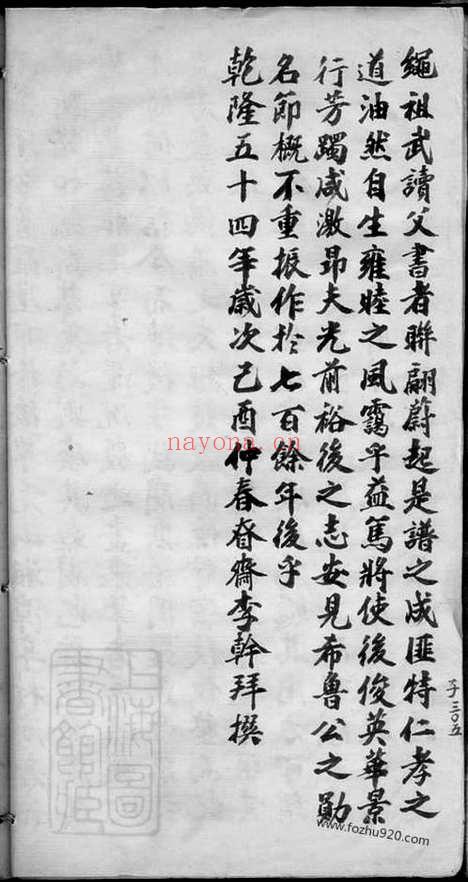 繩祖武讀父書者聨翩蔚起是譜之成匪特仁孝之
道油然自生雍睦之風靄乎益篤將使後俊英華景
行芳躅咸激昂夫光前裕後之志安見希魯公之勛
名節概不重振作扵七百餘年後乎
乾隆五十四年歲次己酉仲春眘齋李幹拜撰
子三〇五
上海圖
書館藏
nayona.cn
www.fozhu920.com